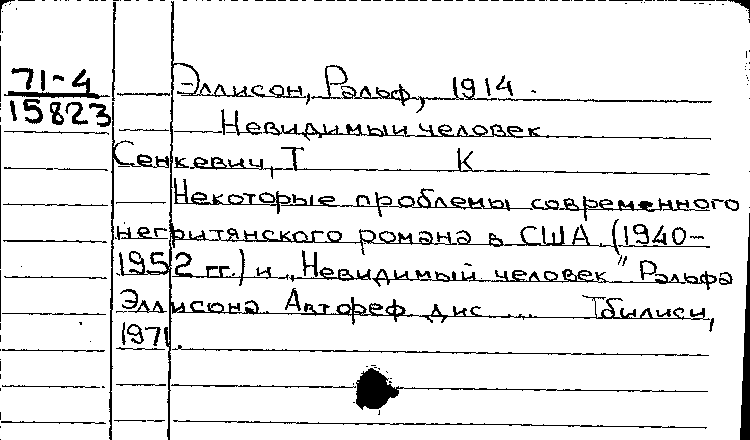 71-4
15823
Эллисон, Рэльф, 1914.
Невидимый человек.
Сенкевич, Т К
Некоторые проблемы современного
негритянского романа в США (1940-
1952 гг.) и „Невидимый человек" Рэльфа
Эллисона. Автореф. дис.... Тбилиси,
1971.